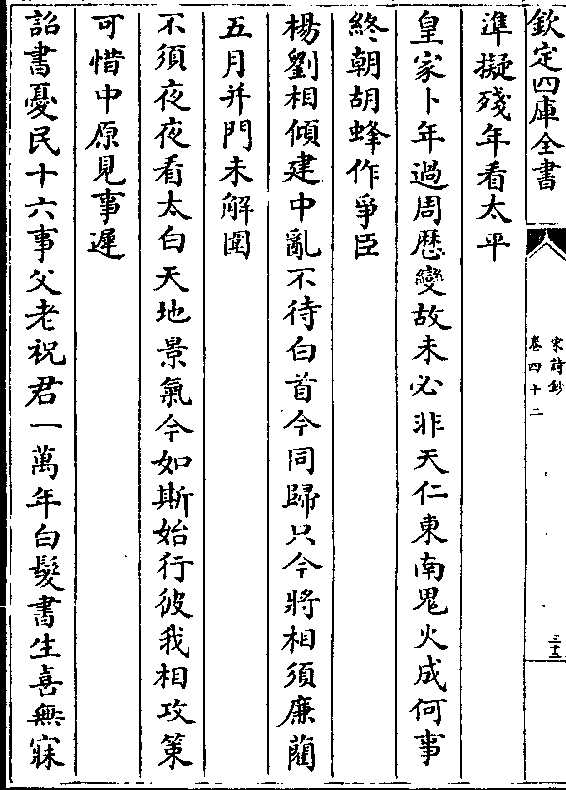 欽定四庫全書
宋詩鈔
卷四十二
三十三
準擬殘年看太平
皇家卜年過周厯變故未必非天仁東南鬼火成何事
終朝胡蜂作爭臣
楊劉相傾建中亂不待白首今同歸只今將相須廉藺
五月并門未解圍
不須夜夜看太白天地景氣今如斯始行彼我相攻策
可惜中原見事遲
詔書憂民十六事父老祝君一萬年白髮書生喜無寐